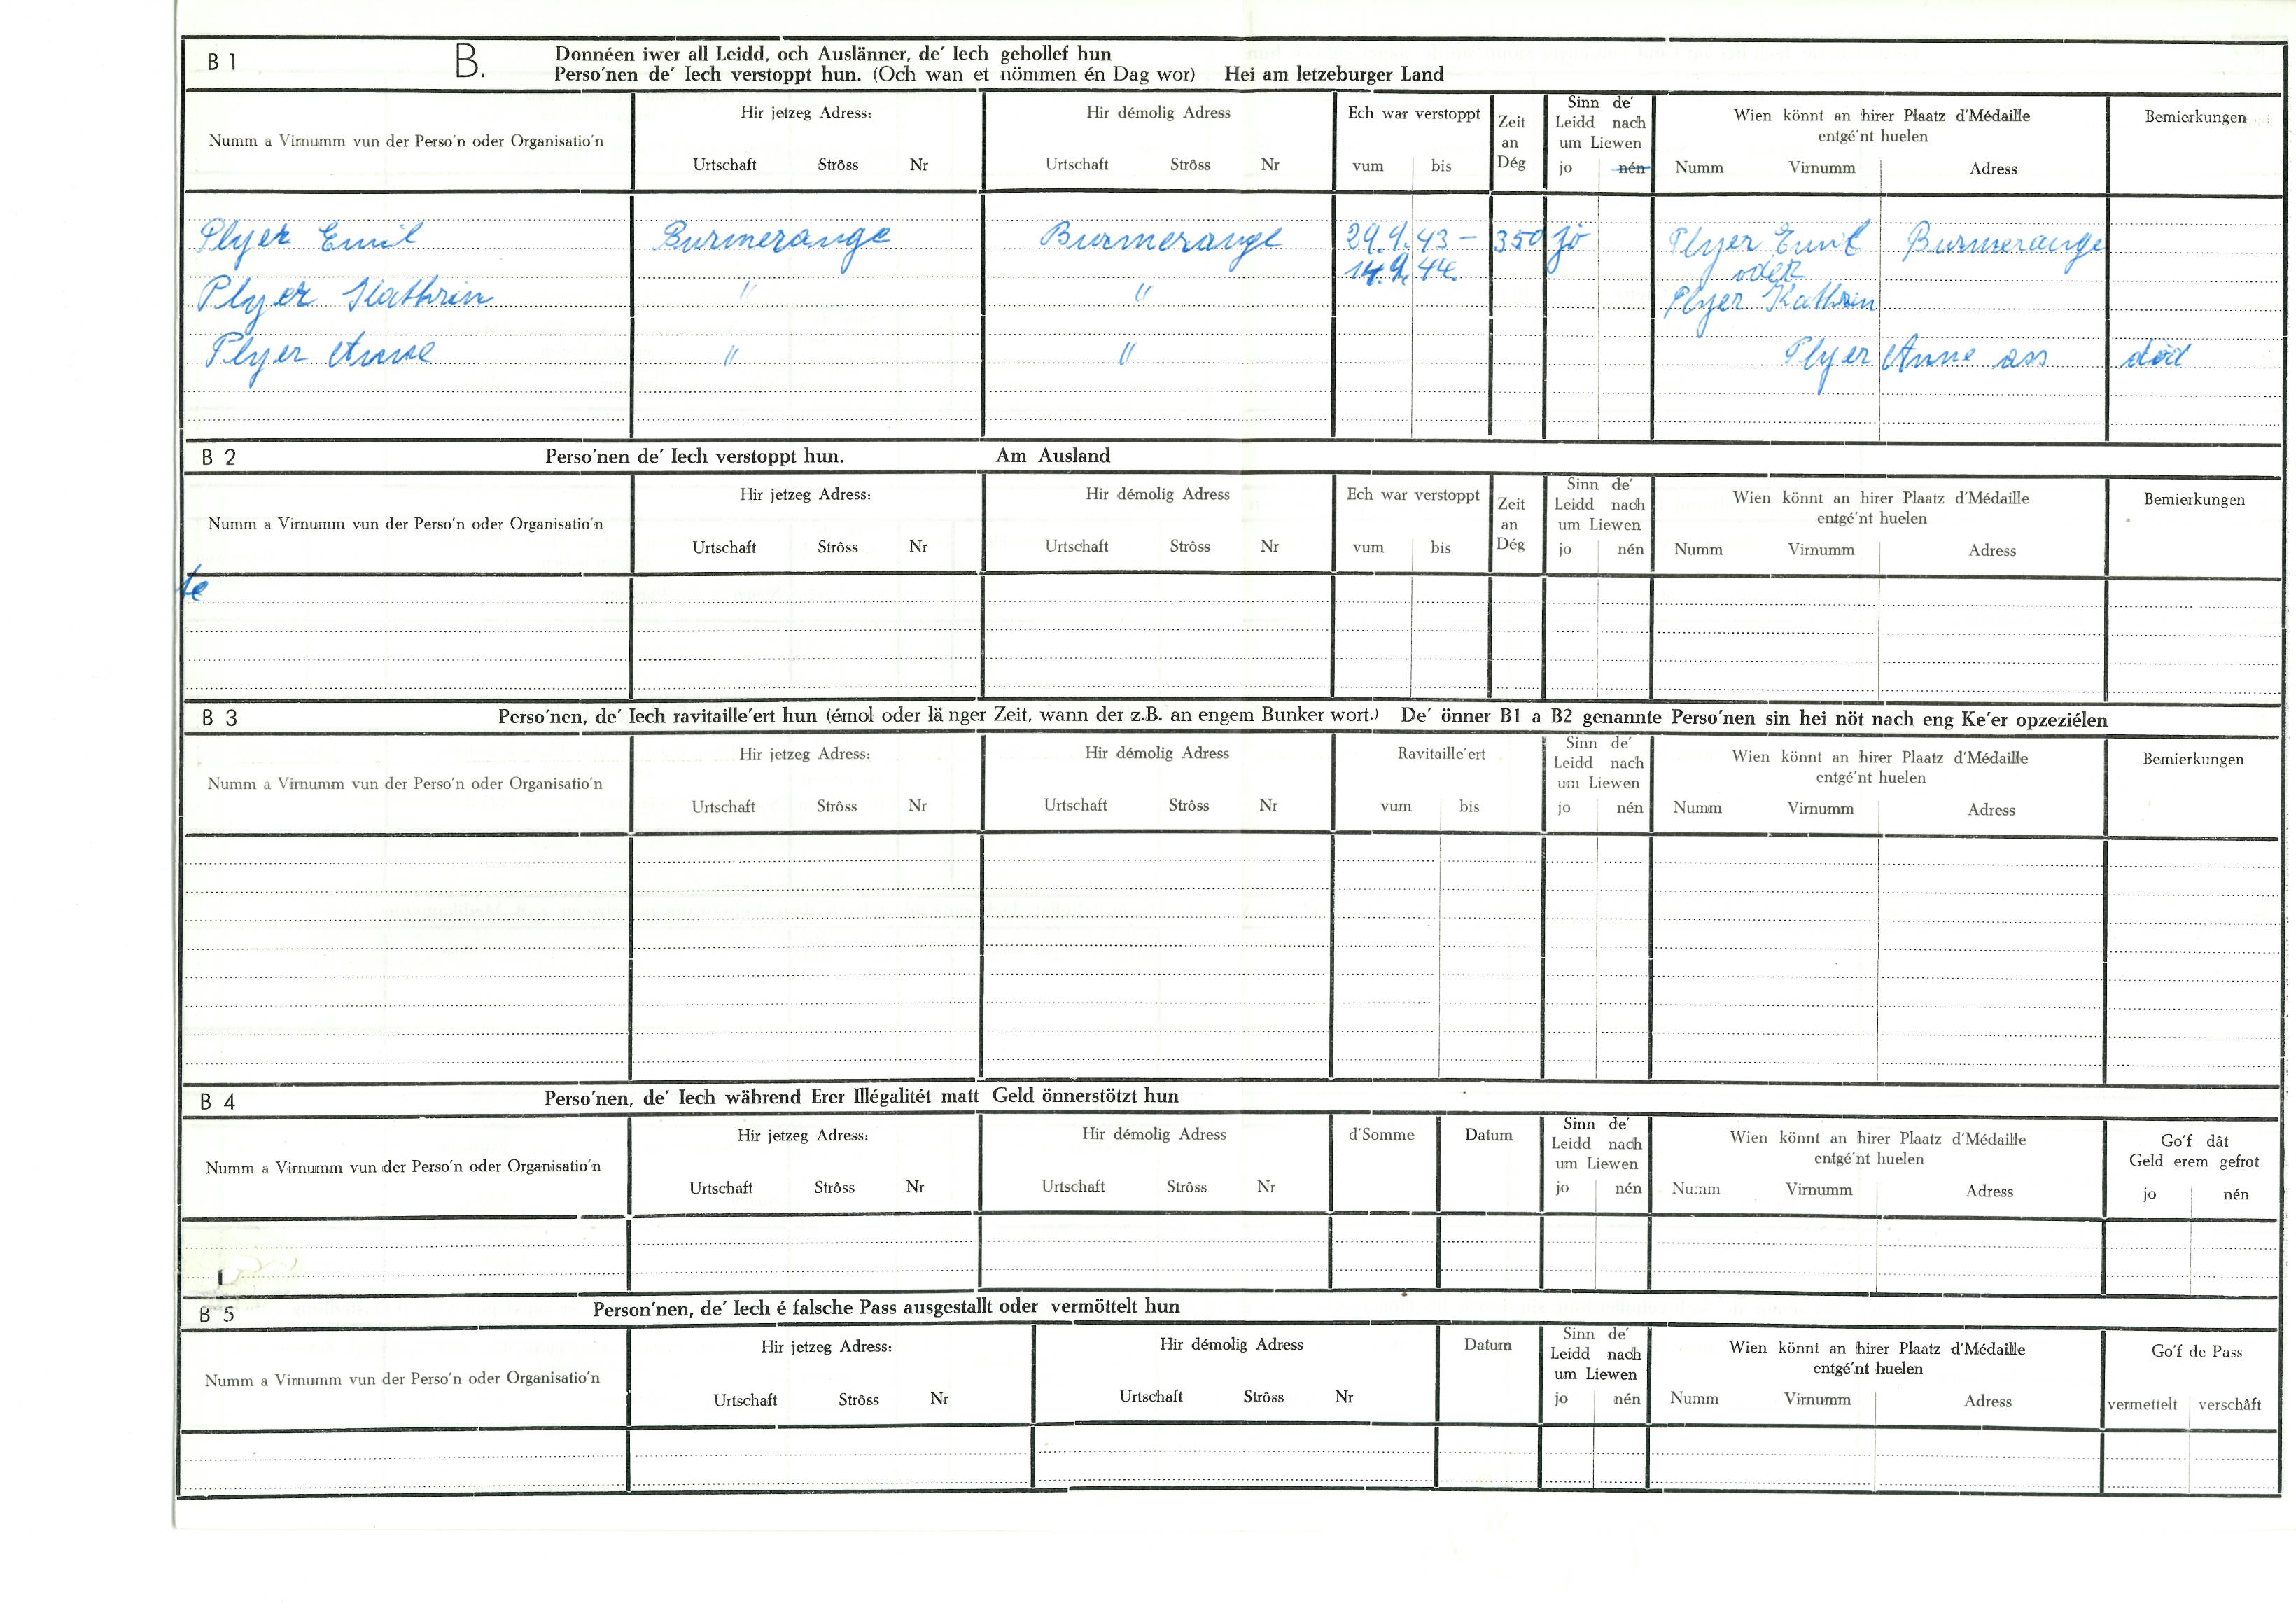 B 1 B. Donnéen iwer all Leidd, och Auslänner, de' Iech gehollef hun
Perso'nen de' Iech verstoppt hun. (Och wan et nömmen én Dag wor) Hei am letzeburger Land
Numm a Virnumm vun der Perso'n oder Organisatio'n
Hir jetzeg Adress:
Urtschaft Strôss Nr
Hir démolig Adress
Urtschaft Strôss Nr
Ech war verstoppt
vum bis
Zeit
an
Dég
Sinn de'
Leidd nach
um Liewen
jo nén
Wien könnt an hirer Plaatz d'Médaille
entgé'nt huelen
Numm Virnumm Adress
Bemierkungen
Plyer Emil Burmerange Burmerange 29.9.43 - 350 jo Plyer Emil Burmerange
14.9.44 oder
Plyer Kathrin " " Plyer Kathrin
Plyer Anne " " Plyer Anne ass död
B 2 Perso'nen de' Iech verstoppt hun. Am Ausland
Numm a Virnumm vun der Perso'n oder Organisatio'n
Hir jetzeg Adress:
Urtschaft Strôss Nr
Hir démolig Adress
Urtschaft Strôss Nr
Ech war verstoppt
vum bis
Zeit
an
Dég
Sinn de'
Leidd nach
um Liewen
jo nén
Wien könnt an hirer Plaatz d'Médaille
entgé'nt huelen
Numm Virnumm Adress
Bemierkungen
te
B 3 Perso'nen, de' Iech ravitaille'ert hun (émol oder länger Zeit, wann der z.B. an engem Bunker wort.) De' önner B1 a B2 genannte Perso'nen sin hei nöt nach eng Ke'er opzeziélen
Numm a Virnumm vun der Perso'n oder Organisatio'n
Hir jetzeg Adress:
Urtschaft Strôss Nr
Hir démolig Adress
Urtschaft Strôss Nr
Ravitaille'ert
vum bis
Sinn de'
Leidd nach
um Liewen
jo nén
Wien könnt an hirer Plaatz d'Médaille
entgé'nt huelen
Numm Virnumm Adress
Bemierkungen
B 4 Perso'nen, de' Iech während Erer Illégalitét matt Geld önnerstötzt hun
Numm a Virnumm vun der Perso'n oder Organisatio'n
Hir jetzeg Adress:
Urtschaft Strôss Nr
Hir démolig Adress
Urtschaft Strôss Nr
d'Somme
Datum
Sinn de'
Leidd nach
um Liewen
jo nén
Wien könnt an hirer Plaatz d'Médaille
entgé'nt huelen
Numm Virnumm Adress
Go'f dât
Geld erem gefrot
jo nén
B 5 Person'nen, de' Iech é falsche Pass ausgestallt oder vermöttelt hun
Numm a Virnumm vun der Perso'n oder Organisatio'n
Hir jetzeg Adress:
Urtschaft Strôss Nr
Hir démolig Adress
Urtschaft Strôss Nr
Datum
Sinn de'
Leidd nach
um Liewen
jo nén
Wien könnt an hirer Plaatz d'Médaille
entgé'nt huelen
Numm Virnumm Adress
Go'f de Pass
vermettelt verschâft